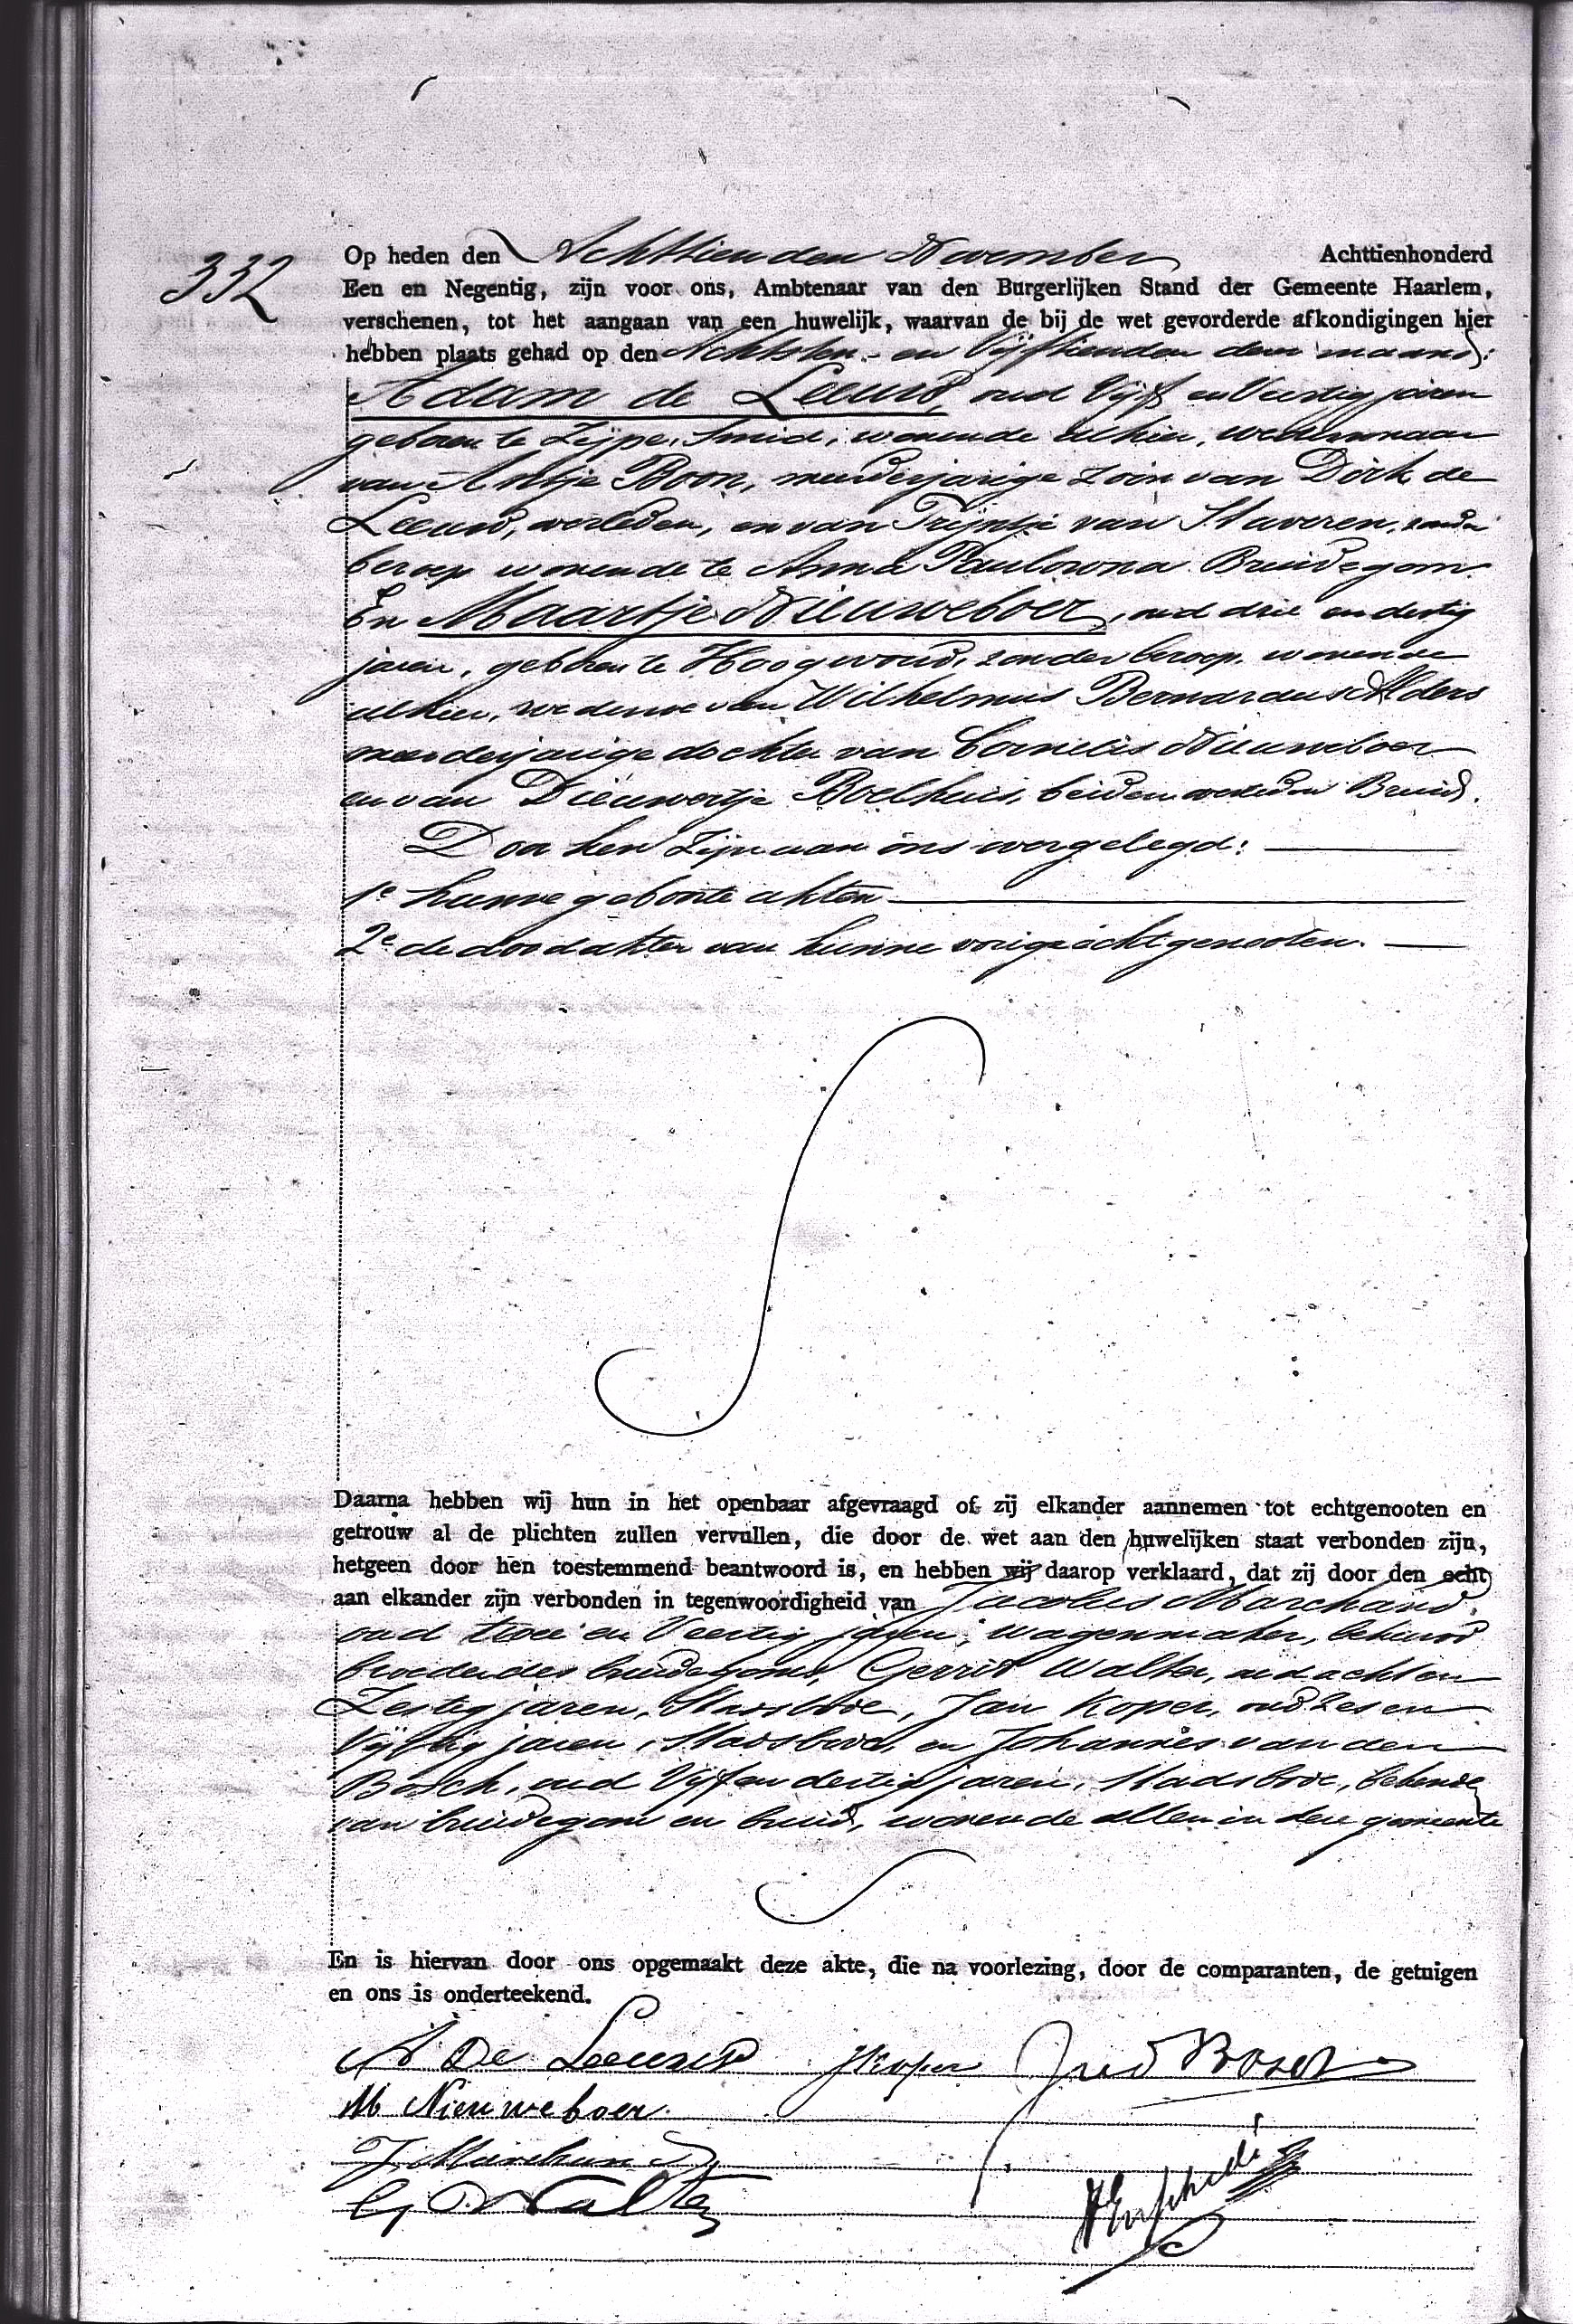 332
Op heden den Achttienden November Achttienhonderd
Een en Negentig, zijn voor ons, Ambtenaar van den Burgerlijken Stand der Gemeente Haarlem,
verschenen, tot het aangaan van een huwelijk, waarvan de bij de wet gevorderde afkondigingen hier
hebben plaats gehad op den Achtsten en Vijftienden dezer maand:
Adam de Leeuw, oud Vijf en Veertig jaren
geboren te Zijpe, Smid, wonende alhier, weduwnaar
van Antje Boon, meerderjarige zoon van Dirk de
Leeuw, overleden, en van Trijntje van Staveren, zonder
beroep wonende te Anna Paulowna Bruidegom.
En Maartje Nieuweboer, oud drie en dertig
jaren, geboren te Hoogwoud, zonder beroep, wonende
alhier, weduwe van Wilhelmus Bernardus Alders
meerderjarige dochter van Cornelis Nieuweboer
en van Dieuwertje Boelhuis, beiden overleden Bruid.
Door hen zijn aan ons overgelegd:
1e hunne geboorte akten
2e de doodakten van hunne vorige echtgenooten.
Daarna hebben wij hun in het openbaar afgevraagd of zij elkander aannemen tot echtgenooten en
getrouw al de plichten zullen vervullen, die door de wet aan den huwelijken staat verbonden zijn,
hetgeen door hen toestemmend beantwoord is, en hebben wij daarop verklaard, dat zij door den echt
aan elkander zijn verbonden in tegenwoordigheid van Jacobus Marchand,
oud twee en Veertig jaren, wagenmaker, behuwd
broeder des bruidegoms, Gerrit Walter, oud acht en
Zestig jaren, Stadsbode, Jan Koper, oud Zes en
Vijftig jaren, Stadsbode, en Johannes van den
Bosch, oud Vijf en dertig jaren, Stadsbode, bekende
van bruidegom en bruid, wonende allen in deze gemeente
En is hiervan door ons opgemaakt deze akte, die na voorlezing, door de comparanten, de getuigen
en ons is onderteekend.
A De Leeuw JKoper JvdBosch
M Nieuweboer.
J. Marchand
G Walter